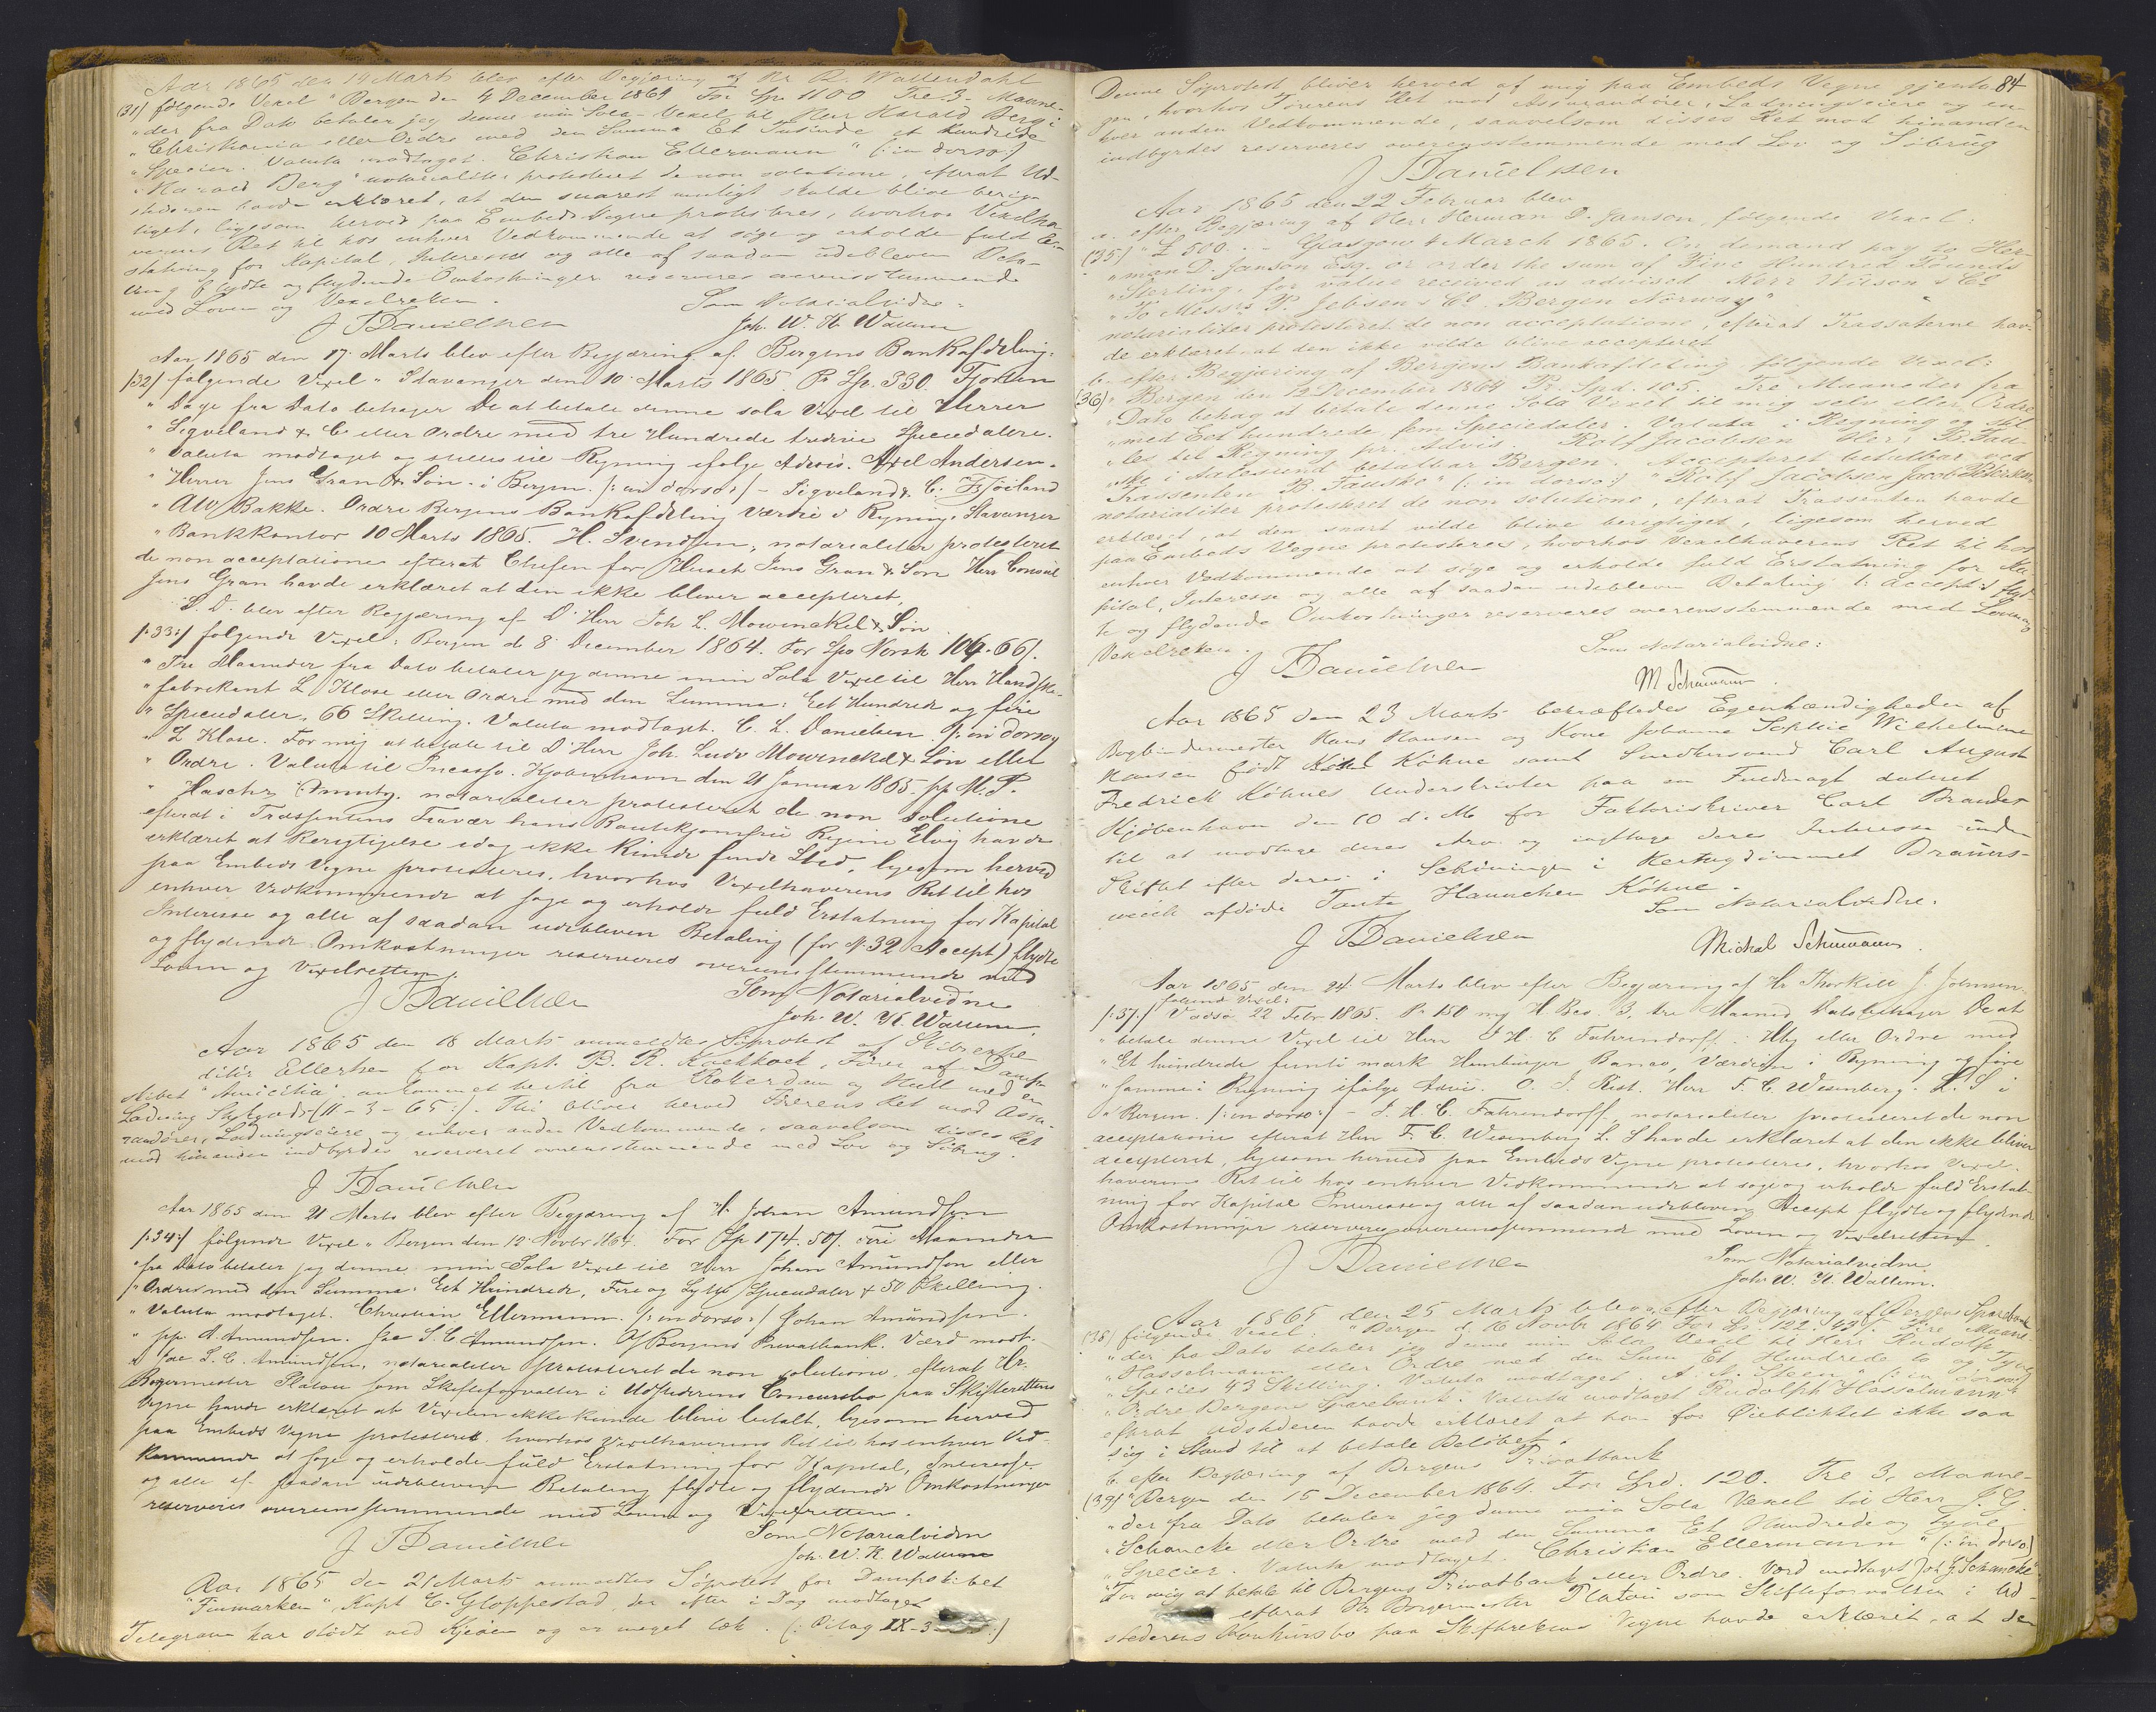 Aar 1865 den 14 Marts blev efter Begjæring af Hr R. Wallendahl
(31) følgende Vexel "Bergen den 4 December 1864 For Sp 1100 Tre 3 Maane-
"der fra Dato betaler jeg denne min Sola-Vexel til Herr Harald Berg i
"Christiania eller Ordre med den Summa Et Tusinde et hundrede
"Specier. Valuta modtaget. Christian Ellermann" (: in dorso :)
"Harald Berg" notarialiter protesteret de non solutione, efterat Ud-
stederen havde erklæret, at den snarest muligt skulde blive berig-
tiget, ligesom herved paa Embeds Vegne protesteres, hvorhos Vexelha-
verens Ret til hos enhver Vedkommende at søge og erholde fuld Er-
statning for Kapital, Interesse og alle af saadan udebleven Beta-
ling flydte og flydende Omkostninger reserveres overensstemmende
med Loven og Vexelretten.
Som Notarialvidne:
J Danielsen
Joh. W. K. Wallem
Aar 1865 den 17. Marts blev efter Begjæring af Bergens Bankafdeling:
/32/ følgende Vexel "Stavanger den 10 Marts 1865. Pr Sp. 330. Fjorten
"Dage fra Dato behager De at betale denne sola Vexel til Herrer
"Sigveland & C. eller Ordre med tre Hundrede tredivie Speciedalere.
"Valuta modtaget og stilles til Regning ifølge Advis. Axel Andersen.
"Herrer Jens Gran & Søn i Bergen. /: in dorso :/ - Sigveland & C. Tjøiland
"Alb Bakke. Ordre Bergens Bankafdeling Værdie i Regning. Stavanger
"Bankkontor 10 Marts 1865. H. Svendsen, notarialiter protesteret
de non acceptatione efterat Chefen for Huset Jens Gran & Søn Herr Consul
Jens Gran havde erklæret at den ikke bliver accepteret,
S. D. blev efter Begjæring af D'Herr Joh. L. Mowinckel & Søn
/:33:/ følgende Vexel: Bergen d. 8 December 1864. For Spd Norsk 104.66/.
"Tre Maaneder fra Dato betaler jeg denne min Sola Vexel til Herr Handske-
"fabrikant L Klose eller Ordre med den Summa: Eet Hundrede og fire
"Speciedaler, 66 Skilling. Valuta modtaget. C. L. Danielsen. /: in dorso :/
"L Klose. For mig at betale til D'Herr Joh. Ludv Mowinckel & Søn eller
"Ordre. Valuta til Incasso. Kjøbenhavn den 21 Januar 1865. pp M. P.
notarialiter protesteret de non solutione
efterat i Trassentens Fravær hans Regine Elvig havde
erklæret at Berigtigelse idag ikke kunde finde Sted, ligesom herved
paa Embeds Vegne protesteres, hvorhos Vexelhaverens Ret til hos
enhver Vedkommende at søge og erholde fuld Erstatning for Kapital
Interesse og alle af saadan udebleven Betaling (for N. 32 Accept) flydte
og flydende Omkostninger reserveres overensstemmende med
Loven og Vexelretten.
Som Notarialvidne
J Danielsen
Joh. W. K. Wallem.
Aar 1865 den 18 Marts anmeldtes Søprotest af Skibsexpe-
ditør Ellerhen for Kapt. B. R. Kockkock, Fører af Damp-
skibet "Amicitia" ankommet hertil fra Roterdam og Hull med en
Ladning Stykgods (11-3-65:). Thi bliver herved Førerens Ret mod Assu-
randører, Ladningseiere og enhver anden Vedkommende, saavelsom disses Ret
mod hinanden indbyrdes reserveret overensstemmende med Lov og Søbrug.
J Danielsen
Aar 1865 den 21 Marts blev efter Begjæring af Hr Johan Amundsen
/:34:/ følgende Vexel "Bergen den 12 Novbr 1864. For Sp 174. 50/. Fire Maaneder
"fra Dato betaler jeg denne min Sola Vexel til Herr Johan Amundsen eller
"Ordre med den Summa: Eet Hundrede, Fire og Sytti Speciedaler & 50 Skilling.
"Valuta modtaget. Christian Ellermann. /: in dorso :/ Johan Amundsen.
"pp. A. Amundsen. Jac S. C. Amundsen. Bergens Privatbank. Værd modt.
"Jac S. C. Amundsen, notarialiter protesteret de non solutione, efterat Hr.
Borgermester Platou som Skifteforvalter i Udstederens Concursbo paa Skifterettens
Vegne havde erklæret at Vexelen ikke kunde blive betalt, ligesom herved
paa Embeds Vegne protesteret. hvorhos Vexelhaverens Ret til hos enhver Ved-
kommende at søge og erholde fuld Erstatning for Kapital, Interesse
og alle af saadan udebleven Betaling flydte og flydende Omkostninger
reserveres overensstemmende med Loven og Vexelretten.
Som Notarialvidne
J Danielsen
Joh. W. K. Wallem
Aar 1865 den 21 Marts anmeldtes Søprotest for Dampskibet
"Finmarken", Kapt C. Gloppestad, der efter i Dag modtaget
Telegram har stødt ved Kjeøen og er meget læk. (: Bilag IX-3 :)
84
Denne Søprotest bliver herved af mig paa Embeds Vegne gjenta-
gen, hvorhos Førerens Ret mod Assurandører, Ladningseiere og en-
hver anden Vedkommende, saavelsom disses Ret mod hinanden
indbyrdes reserveres overensstemmende med Lov og Søbrug
J Danielsen
Aar 1865 den 22 Februar blev
a. efter Begjæring af Herr Herman D. Janson, følgende Vexel:
(35) "£ 500. - Glasgow 4 March 1865. On demand pay to Her-
"man D. Janson Esq. or order the sum of Five Hundred Pounds
"Sterling, for value received as advised Kerr Wilson & Co
"To Messrs P. Jebsen & Co. Bergen Norway"
notarialiter protesteret de non acceptatione, efterat Trassaterne hav-
de erklæret at den ikke vilde blive accepteret
b. efter Begjæring af Bergens Bankafdeling følgende Vexel:
(36) "Bergen den 12 December 1864 Pr. Spd. 105. Tre Maaneder fra
"Dato behag at betale denne Sola Vexel til mig selv eller Ordre
"med Eet hundrede fem Speciedaler. Valuta i Regning og stil-
"les til Regning pr. Advis. Rolf Jacobsen. Herr B. Faus-
"ke i Aalesund betalbar Bergen. Accepteret betalbar ved
Trassenten B. Fauske" (: in dorso :) "Rolf Jacobsen Jacob Petersen
notarialiter protesteret de non solutione, efterat Trassenten havde
erklæret, at den snart vilde blive berigtiget, ligesom herved
paa Embeds Vegne protesteres, hvorhos Vexelhaverens Ret til hos
enhver Vedkommende at søge og erholde fuld Erstatning for Ka-
pital, Interesse og alle af saadan udebleven Betaling (: Accept :) flyd-
te og flydende Omkostninger reserveres overensstemmende med Loven og
Vexelretten.
Som Notarialvidne:
J Danielsen
M Schumann.
Aar 1865 den 23 Marts bekræftedes Egenhændigheden af
Bogbindermester Hans Hansen og Kone Johanne Sophie Wilhelmine
Hansen født Köhne samt Snedkersvend Carl August
Fredrich Köhnes Underskrivter paa en Fuldmagt dateret
Kjöbenhavn den 10 d. M. for Faktoriskriver Carl Brandes
til at modtage deres Arv og iagttage deres Interesse under
Skiftet efter deres i Schöningen i Hertugdömmet Brauns-
weich afdöde Tante Hannchen Köhne.
Som Notarialvidne.
J Danielsen
Michal Schumann.
Aar 1865 den 24 Marts blev efter Begjæring af Hr Thorkill J. Johnsen
følgende Vexel:
/:37:/ Vadsø 22 Febr 1865. Pr 150 mg H. Bco. 3, tre Maaned Dato behager De at
"betale denne Vexel til Herr J. H. C. Fahrendorff i Hbg eller Ordre med
"Et hundrede femti mark Hamburger Banco, Værdien i Regning og føre
"samme i Regning ifølge Advis. O. J. Kist. Herr F. C. Wesenberg. L. S i
"Bergen. /: in dorso :/ - J. H. C. Fahrendorff, notarialiter protesteret de non
acceptatione efterat Herr F. C. Wesenberg L. S havde erklæret at den ikke bliver
accepteret, ligesom herved paa Embeds Vegne protesteres, hvorhos Vexel-
haverens Ret til hos enhver Vedkommende at søge og erholde fuld Erstat-
ning for Kapital Interesse og alle af saadan udebleven Accept flydte og flydende
Omkostninger reserveres overensstemmende med Loven og Vexelretten
Som Notarialvidne
J Danielsen
Joh. W. K. Wallem.
Aar 1865 den 25 Marts blev a. efter Begjæring af Bergens Sparebank
(38) følgende Vexel: "Bergen d. 16 Novbr 1864 For Sp. 122. 43/. Fire Maane-
"der fra Dato betaler jeg denne min Sola Vexel til Herr Rudolph
"Hasselmann eller Ordre med den Sum Et Hundrede to og Tyve
"Species 43 Skilling. Valuta modtaget. A. N. Steen (: in dorso :)
"Ordre Bergens Sparebank. Valuta modtaget Rudolph Hasselmann"
efterat Udstederen havde erklæret at han for Øieblikket ikke saa
sig i Stand til at betale Beløbet.
b. efter Begjæring af Bergens Privatbank
(39) "Bergen den 15 December 1864. For Spd. 120. Tre 3, Maane-
"der fra Dato betaler jeg denne min Sola Vexel til Herr J. G.
"Schancke eller Ordre med den Summa Et Hundrede og tyve
"Specier. Valuta modtaget. Christian Ellermann" (: in dorso :)
"For mig at betale til Bergens Privatbank eller Ordre. Værd modtaget Joh G. Schancke"
efterat Hr Borgermester Platou som Skifteforvalter i Ud-
stederens Konkursbo paa Skifterettens Vegne havde erklæret, at den